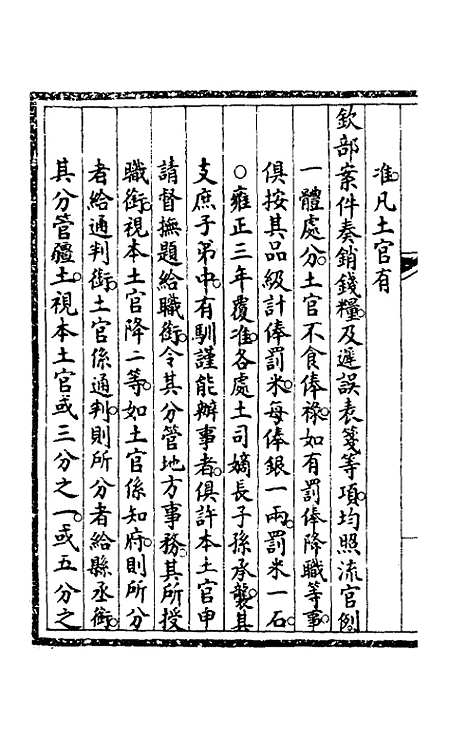 准凡土官有
欽部案件奏銷錢糧及遲誤表箋等項均照流官例
一體處分土官不食俸祿如有罰俸降職等事
俱按其品級計俸罰米每俸銀一兩罰米一石
○雍正三年覆准各處土司嫡長子孫承襲其
支庶子弟中有馴謹能辦事者俱許本土官申
請督撫題給職銜令其分管地方事務其所授
職銜視本土官降二等如土官係知府則所分
者給通判銜土官係通判則所分者給縣丞銜
其分管疆土視本土官或三分之一或五分之